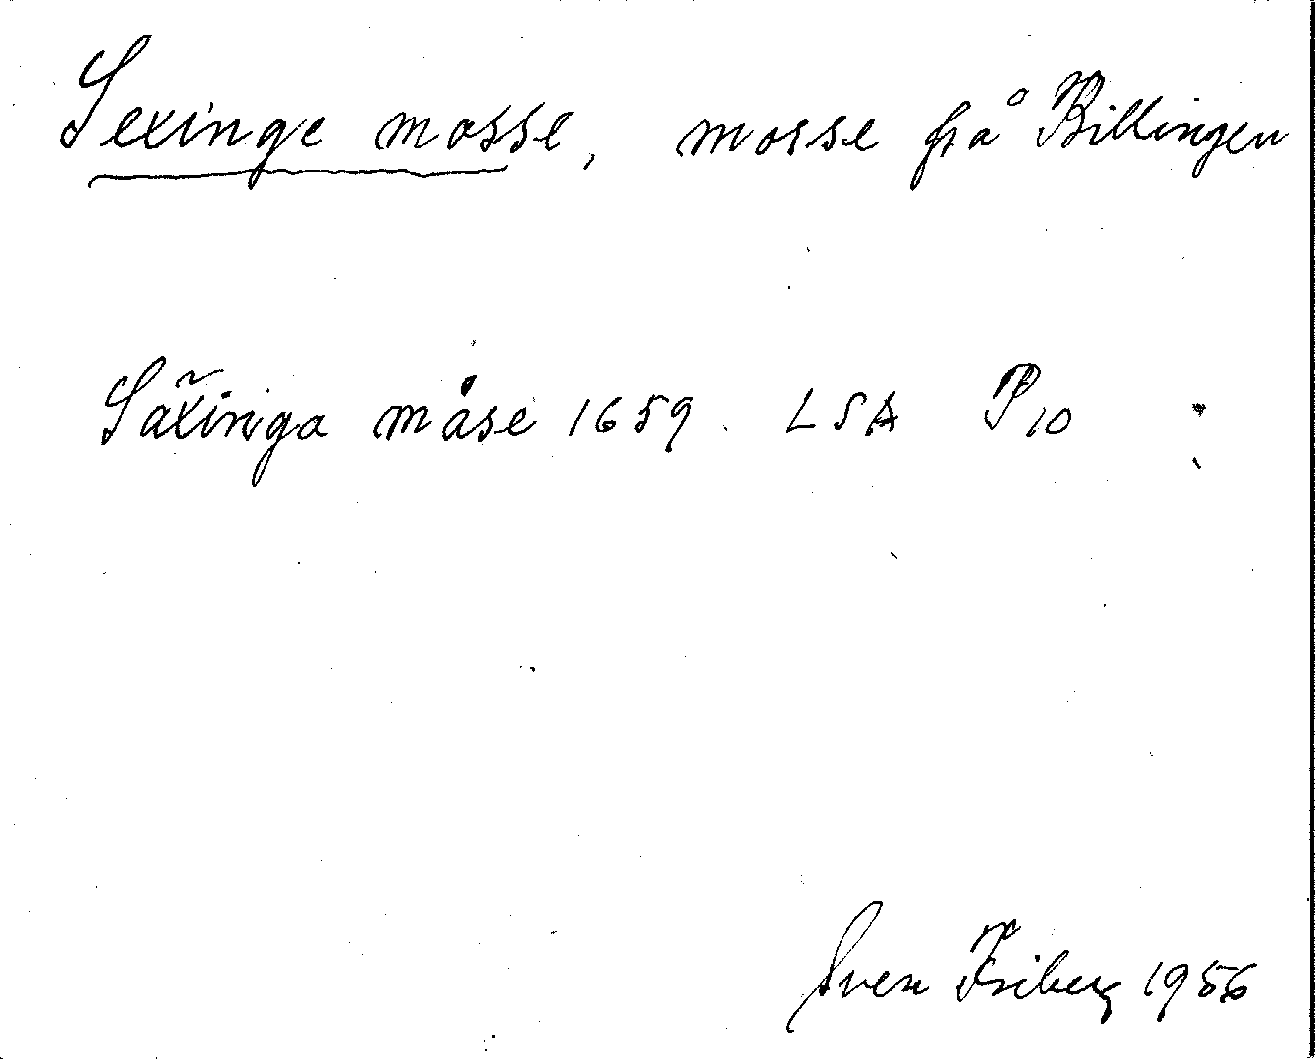 Sexinge mosse, mosse på Billingen
Säxinga måse 1659. LSA P10
Sven Friberg 1956